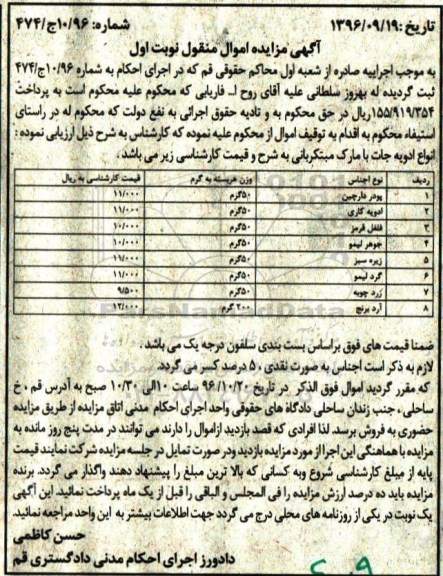 تاریخ :۱۳۹۶/۰۹/۱۹ شماره: ۱۰/۹۶ج/۴۷۴
آگهی مزایده اموال منقول نوبت اول
به موجب اجراییه صادره از شعبه اول محاکم حقوقی قم که در اجرای احکام به شماره ۱۰/۹۶ج/۴۷۴
ثبت گردیده له بهروز سلطانی علیه آقای روح ا... فاریابی که محکوم علیه محکوم است به پرداخت
۱۵۵/۹۱۹/۳۵۴ریال در حق محکوم به و تادیه حقوق اجرائی به نفع دولت که محکوم له در راستای
استیفاء محکوم به اقدام به توقیف اموال از محکوم علیه نموده که کارشناس به شرح ذیل ارزیابی نموده :
انواع ادویه جات با مارک مبتکریانی به شرح و قیمت کارشناسی زیر می باشد .
ردیف نوع اجناس وزن هربسته به گرم قیمت کارشناسی به ریال
۱ پودر دارچین ۵۰گرم ۱۱/۰۰۰
۲ ادویه کاری ۵۰گرم ۱۱/۰۰۰
۳ فلفل قرمز ۵۰گرم ۱۰/۰۰۰
۴ جوهر لیمو ۵۰گرم ۱۰/۰۰۰
۵ زیره سبز ۵۰گرم ۱۱/۰۰۰
۶ گرد لیمو ۵۰گرم ۱۱/۰۰۰
۷ زرد چوبه ۵۰گرم ۹/۵۰۰
۸ آرد برنج ۲۰۰ گرم ۱۲/۰۰۰
ضمنا قیمت های فوق براساس بست بندی سلفون درجه یک می باشد .
لازم به ذکر است اجناس به صورت نقدی ، ۵ درصد کسر می گردد.
که مقرر گردید اموال فوق الذکر در تاریخ ۹۶/۱۰/۲۰ ساعت ۱۰الی ۱۰/۳۰ صبح به آدرس قم ، خ
ساحلی ، جنب زندان ساحلی دادگاه های حقوقی واحد اجرای احکام مدنی اتاق مزایده از طریق مزایده
حضوری به فروش برسد. لذا افرادی که قصد بازدید ازاموال را دارند می توانند در مدت پنج روز مانده به
مزایده با هماهنگی این اجرا از مورد مزایده بازدید ودر صورت تمایل در جلسه مزایده شرکت نمایند قیمت
پایه از مبلغ کارشناسی شروع وبه کسانی که بالا ترین مبلغ را پیشنهاد دهند واگذار می گردد. برنده
مزایده باید ده درصد ارزش مزایده را فی المجلس و الباقی را قبل از یک ماه پرداخت نمائید. این آگهی
یک نوبت در یکی از روزنامه های محلی درج می گردد جهت اطلاعات بیشتر به این واحد مراجعه نمائید.
حسن کاظمی
دادورز اجرای احکام مدنی دادگستری قم